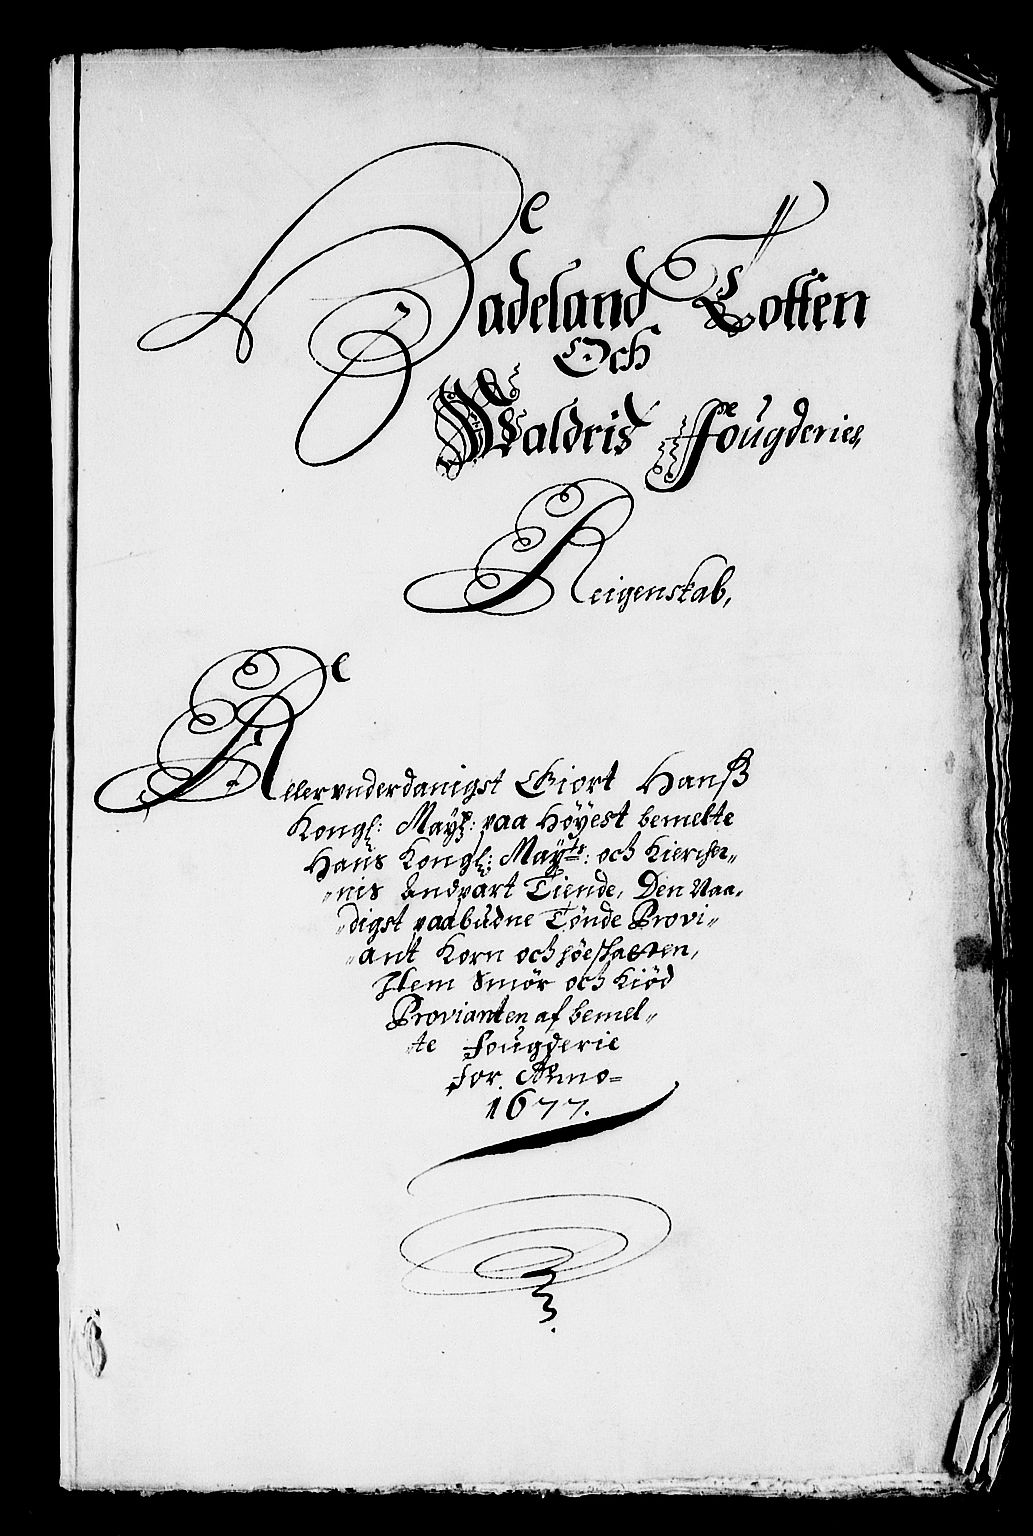 Hadeland Totten
Och
Waldris Fougderies
Reigenskab,
Allervnderdanigst Giort Hanß
Kongl: Mayt: paa Høyest bemelte
Hans Kongl: Mayts: och Kiercher„
„nis Andpart Tiende, Den Naa„
„digst paabudne Tønde Provi„
„ant Korn och
Item Smør och Kiød
Provianten af bemel„
„te Fougderie
for Anno=
1677.